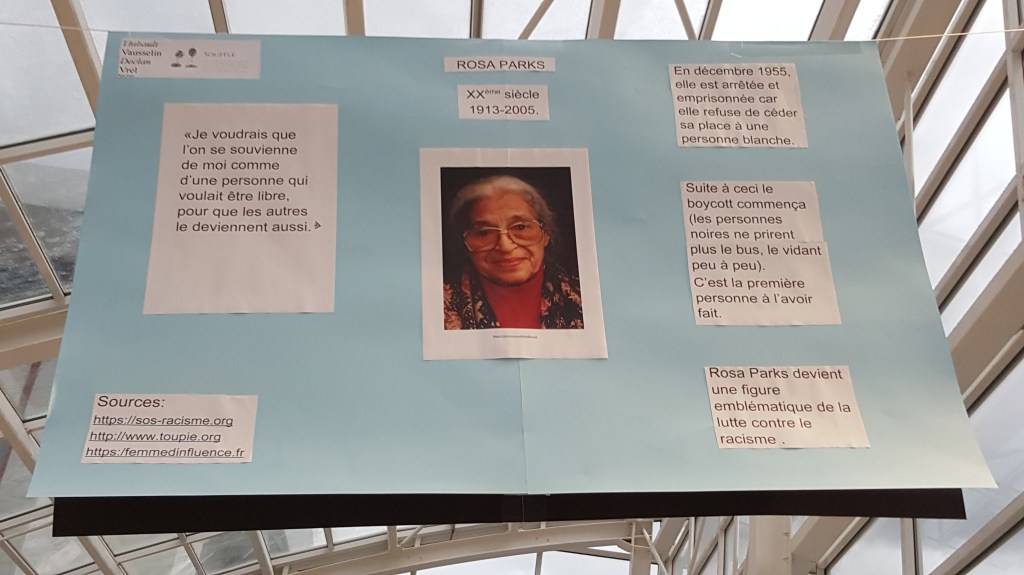 Thibault
Vausselin
Declan
Vret
SOUFFLE
ROSA PARKS
XXème siècle
1913-2005.
«Je voudrais que
l'on se souvienne
de moi comme
d'une personne qui
voulait être libre,
pour que les autres
le deviennent aussi.»
En décembre 1955,
elle est arrêtée et
emprisonnée car
elle refuse de céder
sa place à une
personne blanche.
Suite à ceci le
boycott commença
(les personnes
noires ne prirent
plus le bus, le vidant
peu à peu).
C'est la première
personne à l'avoir
fait.
Rosa Parks devient
une figure
emblématique de la
lutte contre le
racisme .
Sources:
https://sos-racisme.org
http://www.toupie.org
https://femmedinfluence.fr